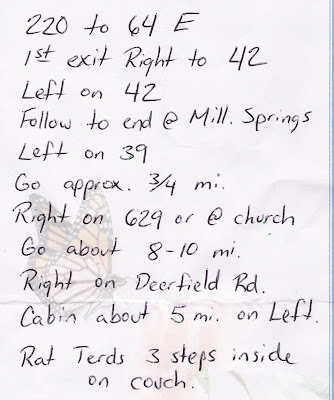 220 to 64 E
1st exit Right to 42
Left on 42
Follow to end @ Mill. Springs
Left on 39
Go approx. 3/4 mi.
Right on 629 or @ church
Go about 8-10 mi.
Right on Deerfield Rd.
Cabin about 5 mi. on Left.
Rat Terds 3 steps inside
on couch.